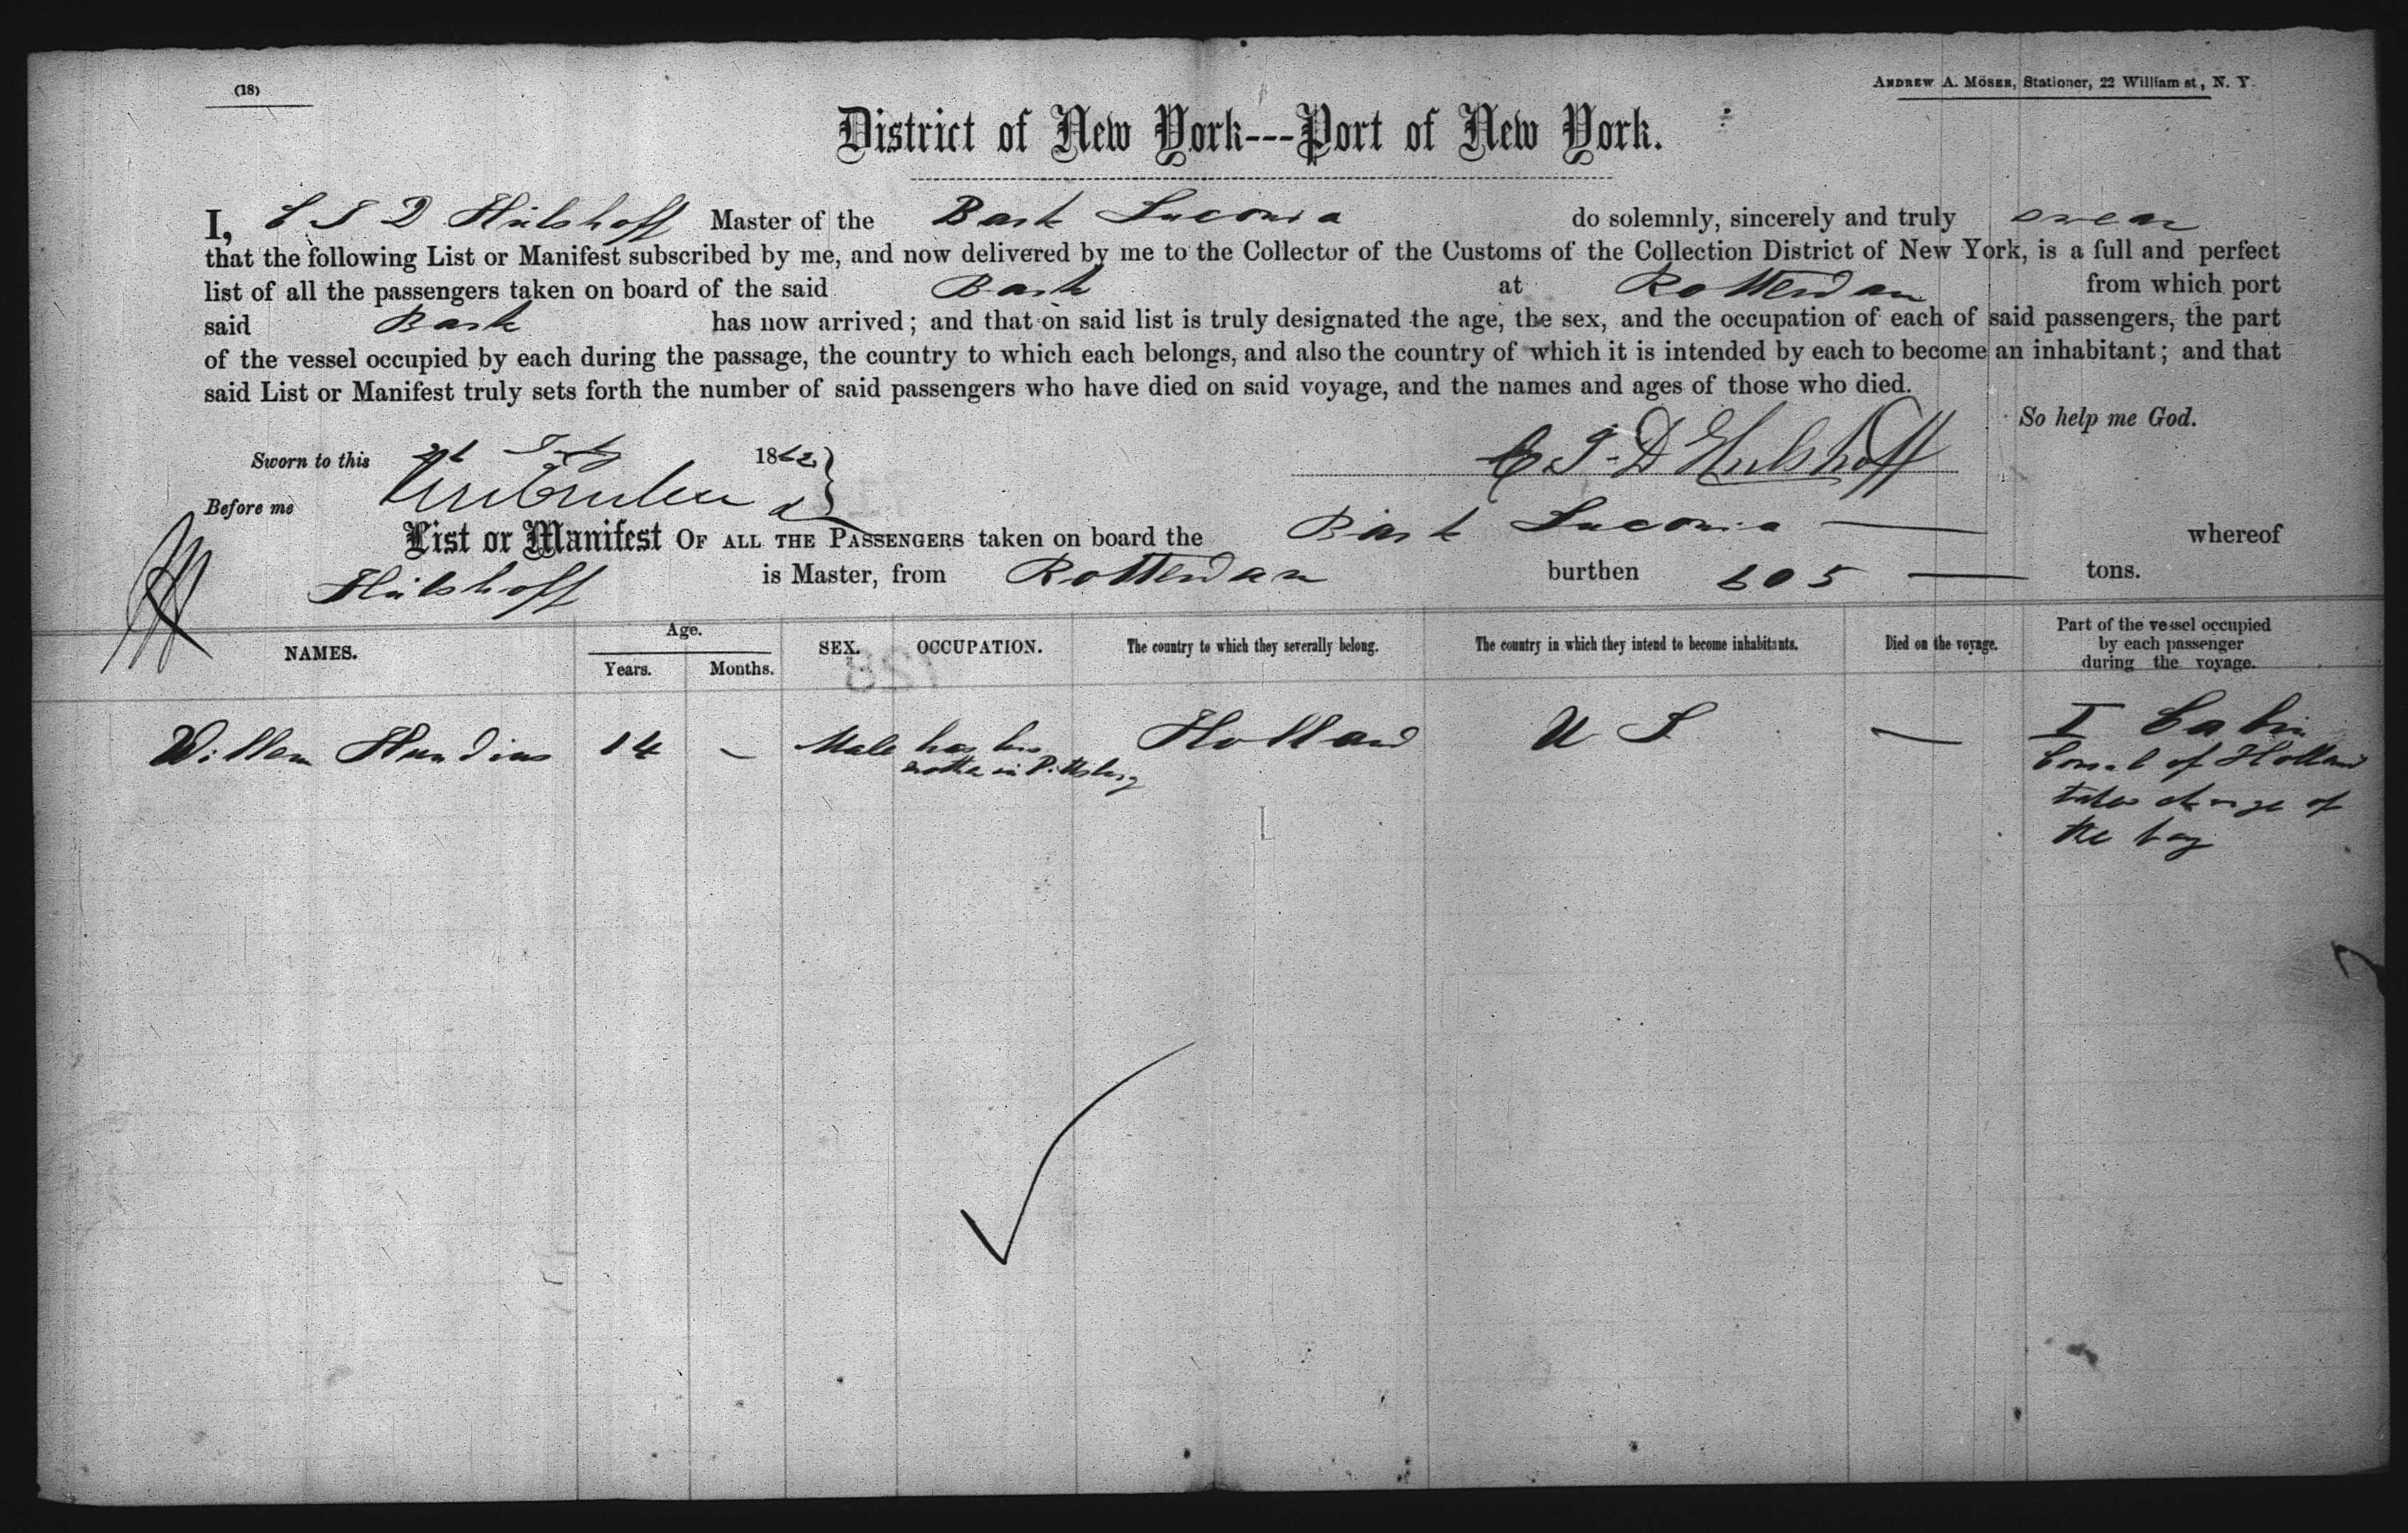 (18)
ANDREW A. MÖSER, Stationer, 22 William st., N. Y.
District of New York---Port of New York.
I, C J D Hülshoff Master of the Bark Luconia do solemnly, sincerely and truly swear
that the following List or Manifest subscribed by me, and now delivered by me to the Collector of the Customs of the Collection District of New York, is a full and perfect
list of all the passengers taken on board of the said Bark at Rotterdam from which port
said Bark has now arrived; and that on said list is truly designated the age, the sex, and the occupation of each of said passengers, the part
of the vessel occupied by each during the passage, the country to which each belongs, and also the country of which it is intended by each to become an inhabitant; and that
said List or Manifest truly sets forth the number of said passengers who have died on said voyage, and the names and ages of those who died.
So help me God.
Sworn to this 1862
C J D Hulshoff
Before me
List or Manifest OF ALL THE PASSENGERS taken on board the Bark Luconia whereof
Hülshoff is Master, from Rotterdam burthen 605 tons.
NAMES. Age. Years. Months. SEX. OCCUPATION. The country to which they severally belong. The country in which they intend to become inhabitants. Died on the voyage. Part of the vessel occupied by each passenger during the voyage.
Willem Hundius 14 – Male has his Holland U S — I Cabin
in Pittsburg
Consul of Holland
takes charge of
the boy